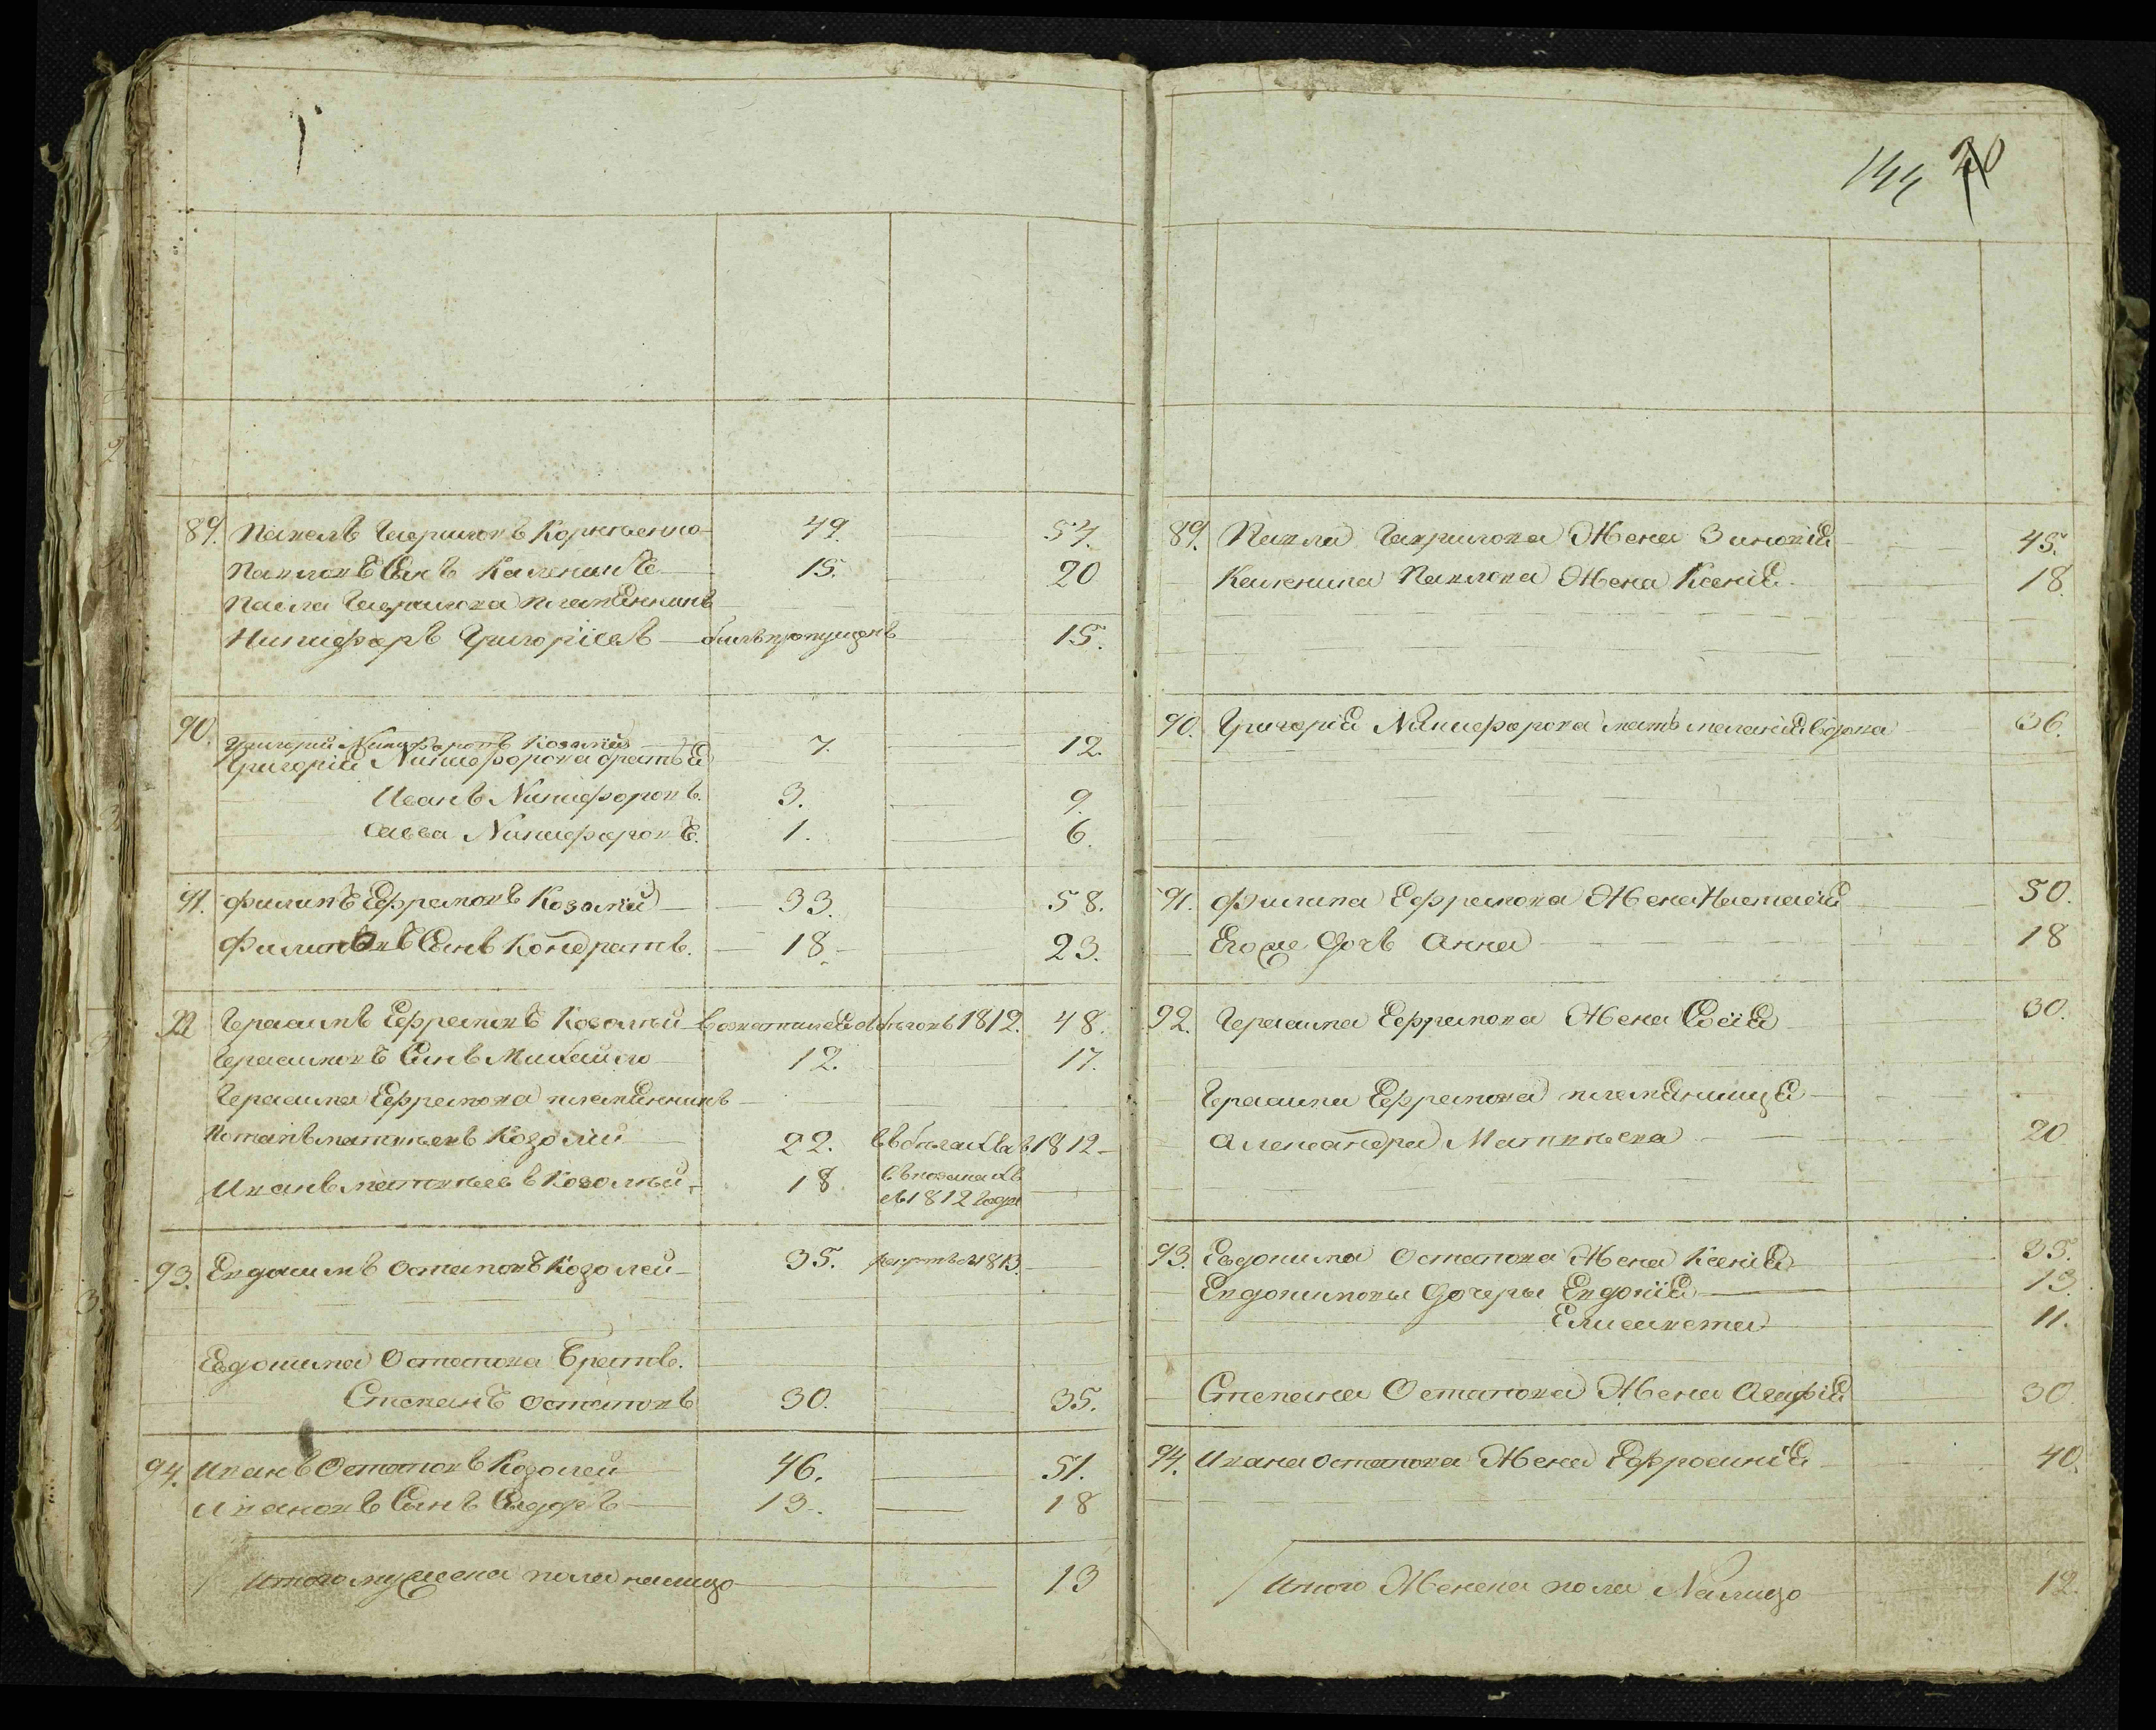 144 20
89. Павелъ Гавриловъ 49. 54.
Павловъ Сынъ 15. 20
Павла Гаврилова племянникъ
Никифоръ Григорiевъ былъ пропущенъ 15.
90. Григорий Никифоровъ Козолий 7. 12.
Григорiя Никифорова братья
Иванъ Никифоровъ. 3. 9.
Савва Никифоровъ. 1. 6.
91. Филипъ Ефремовъ Козолий 33. 58.
Филиповъ Сынъ Кондратъ. 18. 23.
92 Герасимъ Ефремовъ Козолий 1812. 48.
Герасимовъ Сынъ Михайло 12. 17.
Герасима Ефремова племянникъ
Потапъ Матвѣевъ Козолий 22. въ бѣгахъ въ 1812
Иванъ Матвѣевъ Козолий 18 въ
съ 1812 года
93. Евдокимъ Остаповъ Козолей 35. умертвъ въ 1813.
Евдокима Остапова братъ.
Степанъ Остаповъ 30. 35.
94. Иванъ Остаповъ Козолей 46. 51.
Ивановъ Сынъ Сидоръ 13. 18
Итого мужеска пола налицо 13
89. Павла Гаврилова Жена Зиновiя 45.
Павлова Жена Ксенiя 18.
90. Григорiя Никифорова мать Меланiя вдова 36.
91. Филипа Ефремова Жена Настасiя 50.
Его же дочь Анна 18
92. Герасима Ефремова Жена 30.
Герасима Ефремова племяница
Александра Матвѣева 20
93. Евдокима Остапова Жена Ксенiя 35.
Евдокимовы дочеры Евдокiя 13.
Елисавета 11.
Степана Остапова Жена Агафiя 30.
94. Ивана Остапова Жена Ефросинiя 40.
Итого Женска пола Налицо 12.